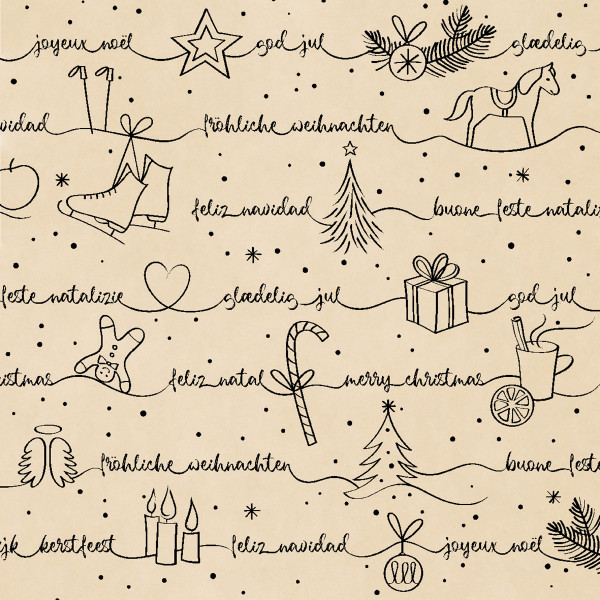 joyeux noël god jul glædelig
vidad fröhliche weihnachten
feliz navidad buone feste natali
feste natalizie glædelig jul god jul
istmas feliz natal merry christmas
fröhliche weihnachten buone feste
ijk kerstfeest feliz navidad joyeux noël